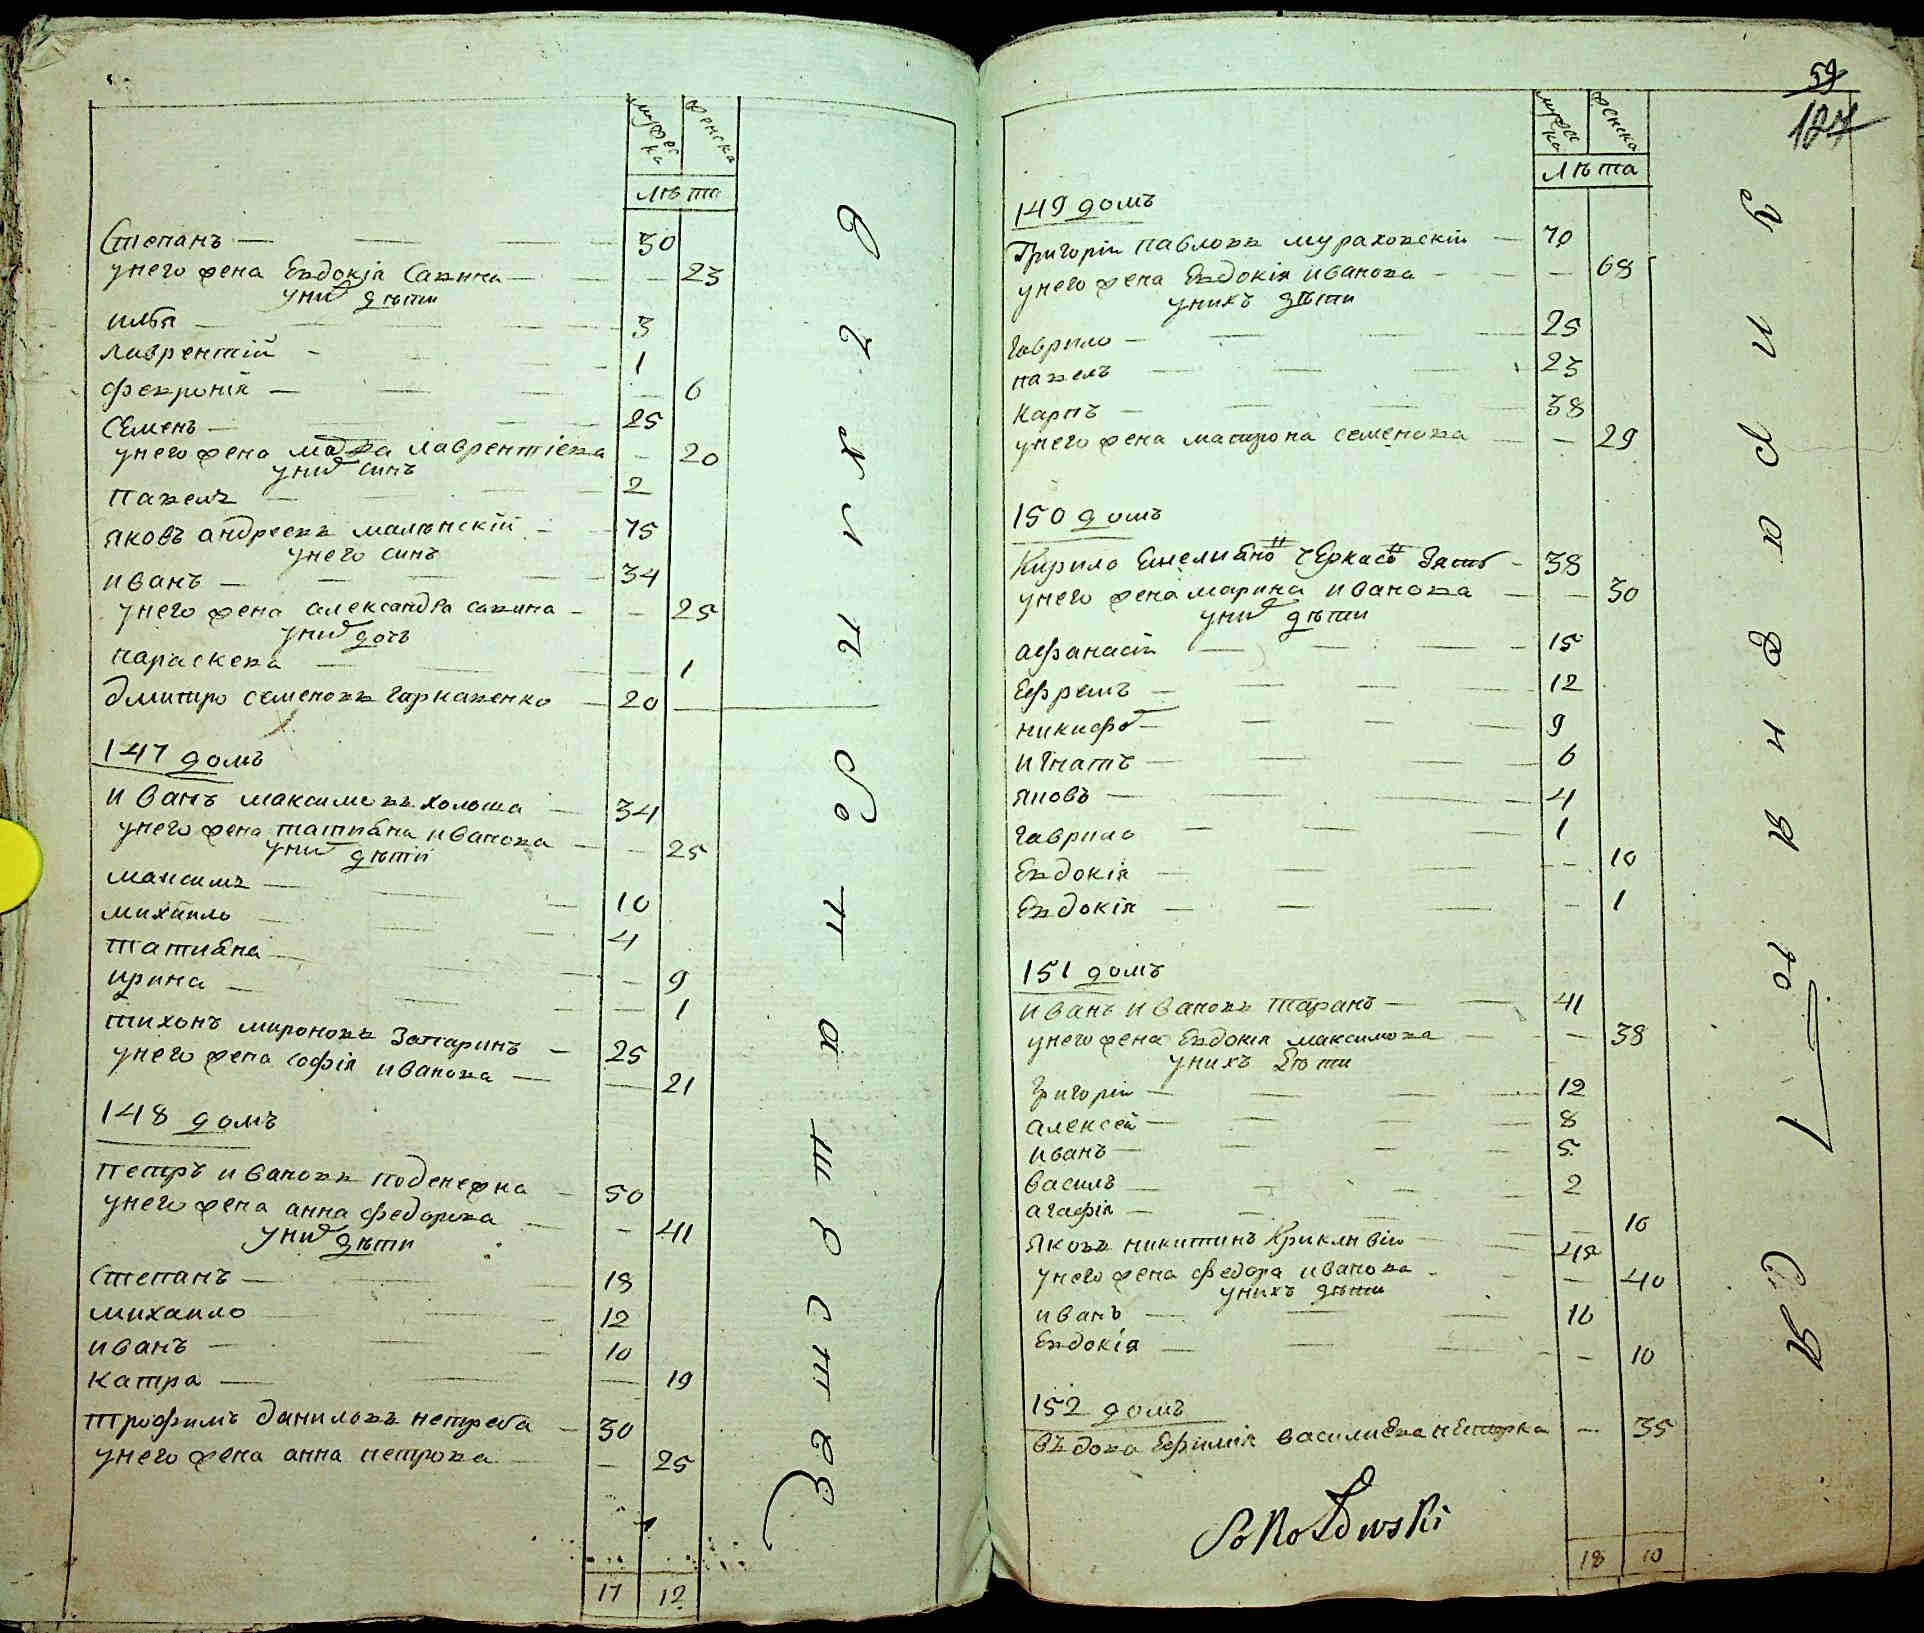 мужеска
женска
лѣта
Степанъ — 30
у него жена Евдокія Савина — 23
у них дѣти
илья — 3
лаврентій — 1
февронія — 6
Семенъ — 25
у него жена лаврентіева — 20
у них синъ
павелъ — 2
яковъ андреевъ малѣнскій — 75
у него синъ
иванъ — 34
у него жена александра савина — 25
у них дочь
параскева — 1
дмитро семеновъ гарнаженко — 20
147 домъ
иванъ максимовъ холоша — 34
у него жена татияна иванова — 25
у них дѣти
максимъ — 10
михаило — 4
татияна — 9
ирина — 1
тихонъ мироновъ Запаринъ — 25
у него жена софія иванова — 21
148 домъ
петръ ивановъ поденежна — 50
у него жена анна федорова — 41
у них дѣти
Степанъ — 18
михаило — 12
иванъ — 10
катра — 19
трофимъ даниловъ нетреба — 30
у него жена анна петрова — 25
17 12
59
124
мужеска
женска
лѣта
149 домъ
Григорій павловъ мураховскій — 70
у него жена Евдокія иванова — 68
у нихъ дѣти
гаврило — 25
павелъ — 23
карпъ — 38
у него жена матрона семенова — 29
150 домъ
Кирило Емелияно Черкасъ Зять — 38
у него жена марина иванова — 30
у них дѣти
афанасій — 15
Ефремъ — 12
никифо — 9
игнатъ — 6
яковъ — 4
гаврило — 1
Евдокія — 10
Евдокія — 1
151 домъ
иванъ ивановъ таранъ — 41
у него жена Евдокія максимова — 38
у нихъ дѣти
григорій — 12
алексей — 8
иванъ — 5
василъ — 2
агафія — 10
яковъ никитинъ Крикливій — 48
у него жена федора иванова — 40
у нихъ дѣти
иванъ — 16
Евдокія — 10
152 домъ
вдова Ефимія василиева — 35
Sokołowski
18 10